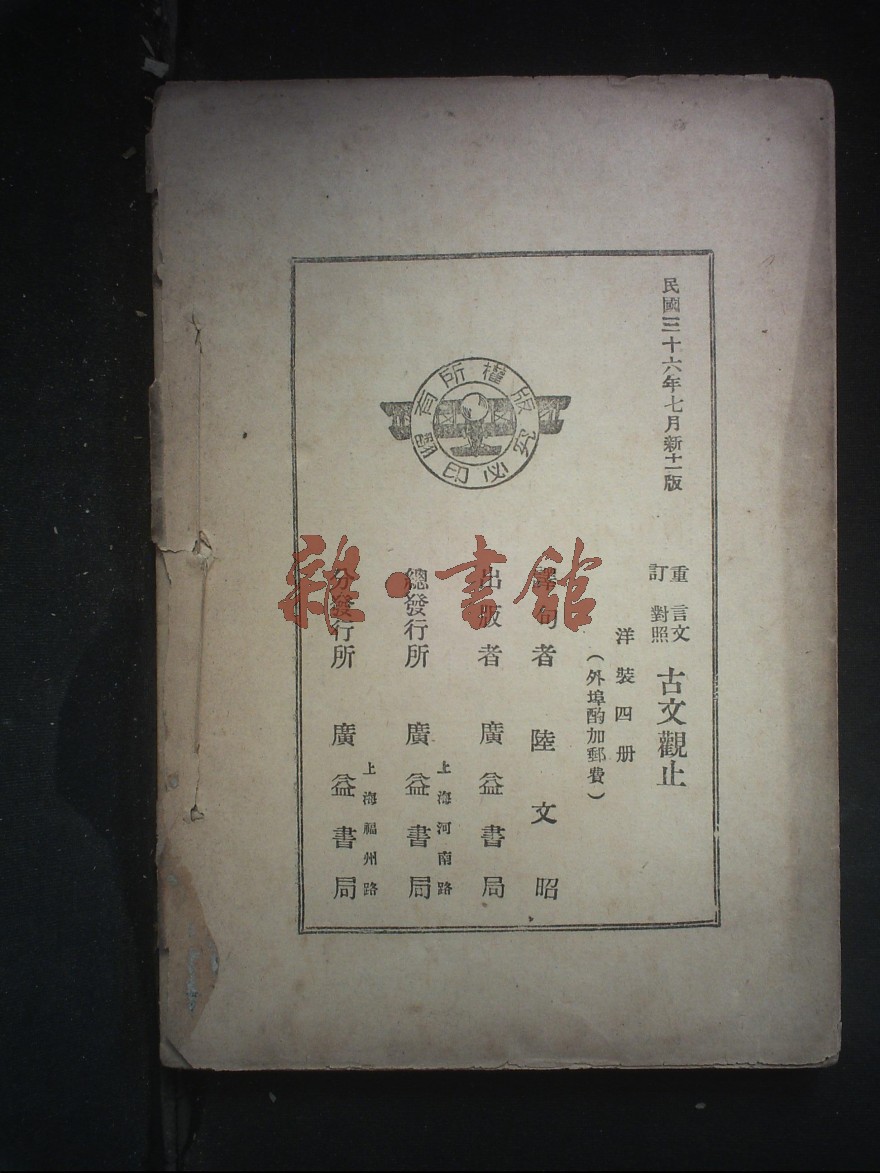 民國三十六年七月新十一版
重訂 言文對照 古文觀止
洋裝四册
（外埠酌加郵費）
譯句者 陸文昭
出版者 廣益書局
上海河南路
總發行所 廣益書局
上海福州路
分發行所 廣益書局
版權所有
翻印必究
雜·書館